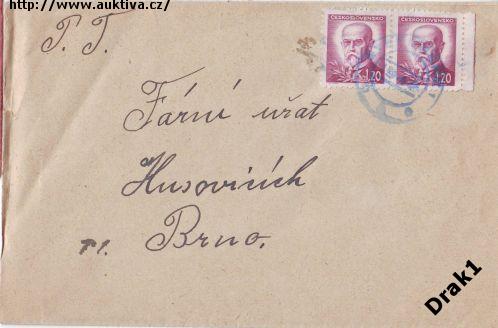 http://www.auktiva.cz/
P. T.
ČESKOSLOVENSKO ČESKOSLOVENSKO
1.20 1.20
Fární uřat
Husovicích
Brno.
Drak1